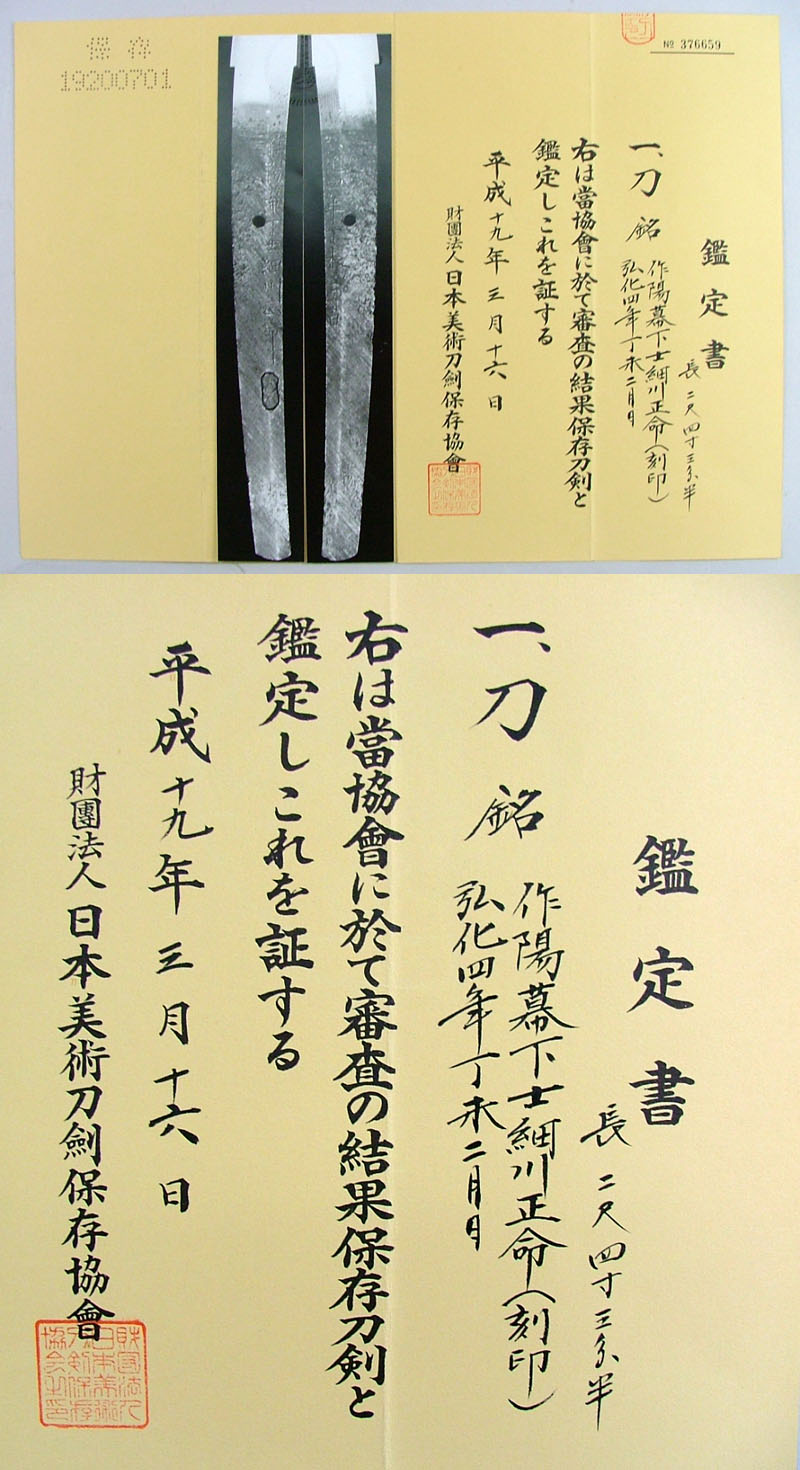 保存
19200701
№ 376659
鑑定書
長 二尺四寸三分半
一、刀 銘 作陽幕下士細川正命(刻印)
弘化四年丁未二月日
右は當協會に於て審査の結果保存刀剣と
鑑定しこれを証する
平成十九年三月十六日
財團法人日本美術刀劍保存協會
鑑定書
長 二尺四寸三分半
一、刀 銘 作陽幕下士細川正命(刻印)
弘化四年丁未二月日
右は當協會に於て審査の結果保存刀剣と
鑑定しこれを証する
平成十九年三月十六日
財團法人日本美術刀劍保存協會
財団法人
日本美術
刀剣保存
協会之印